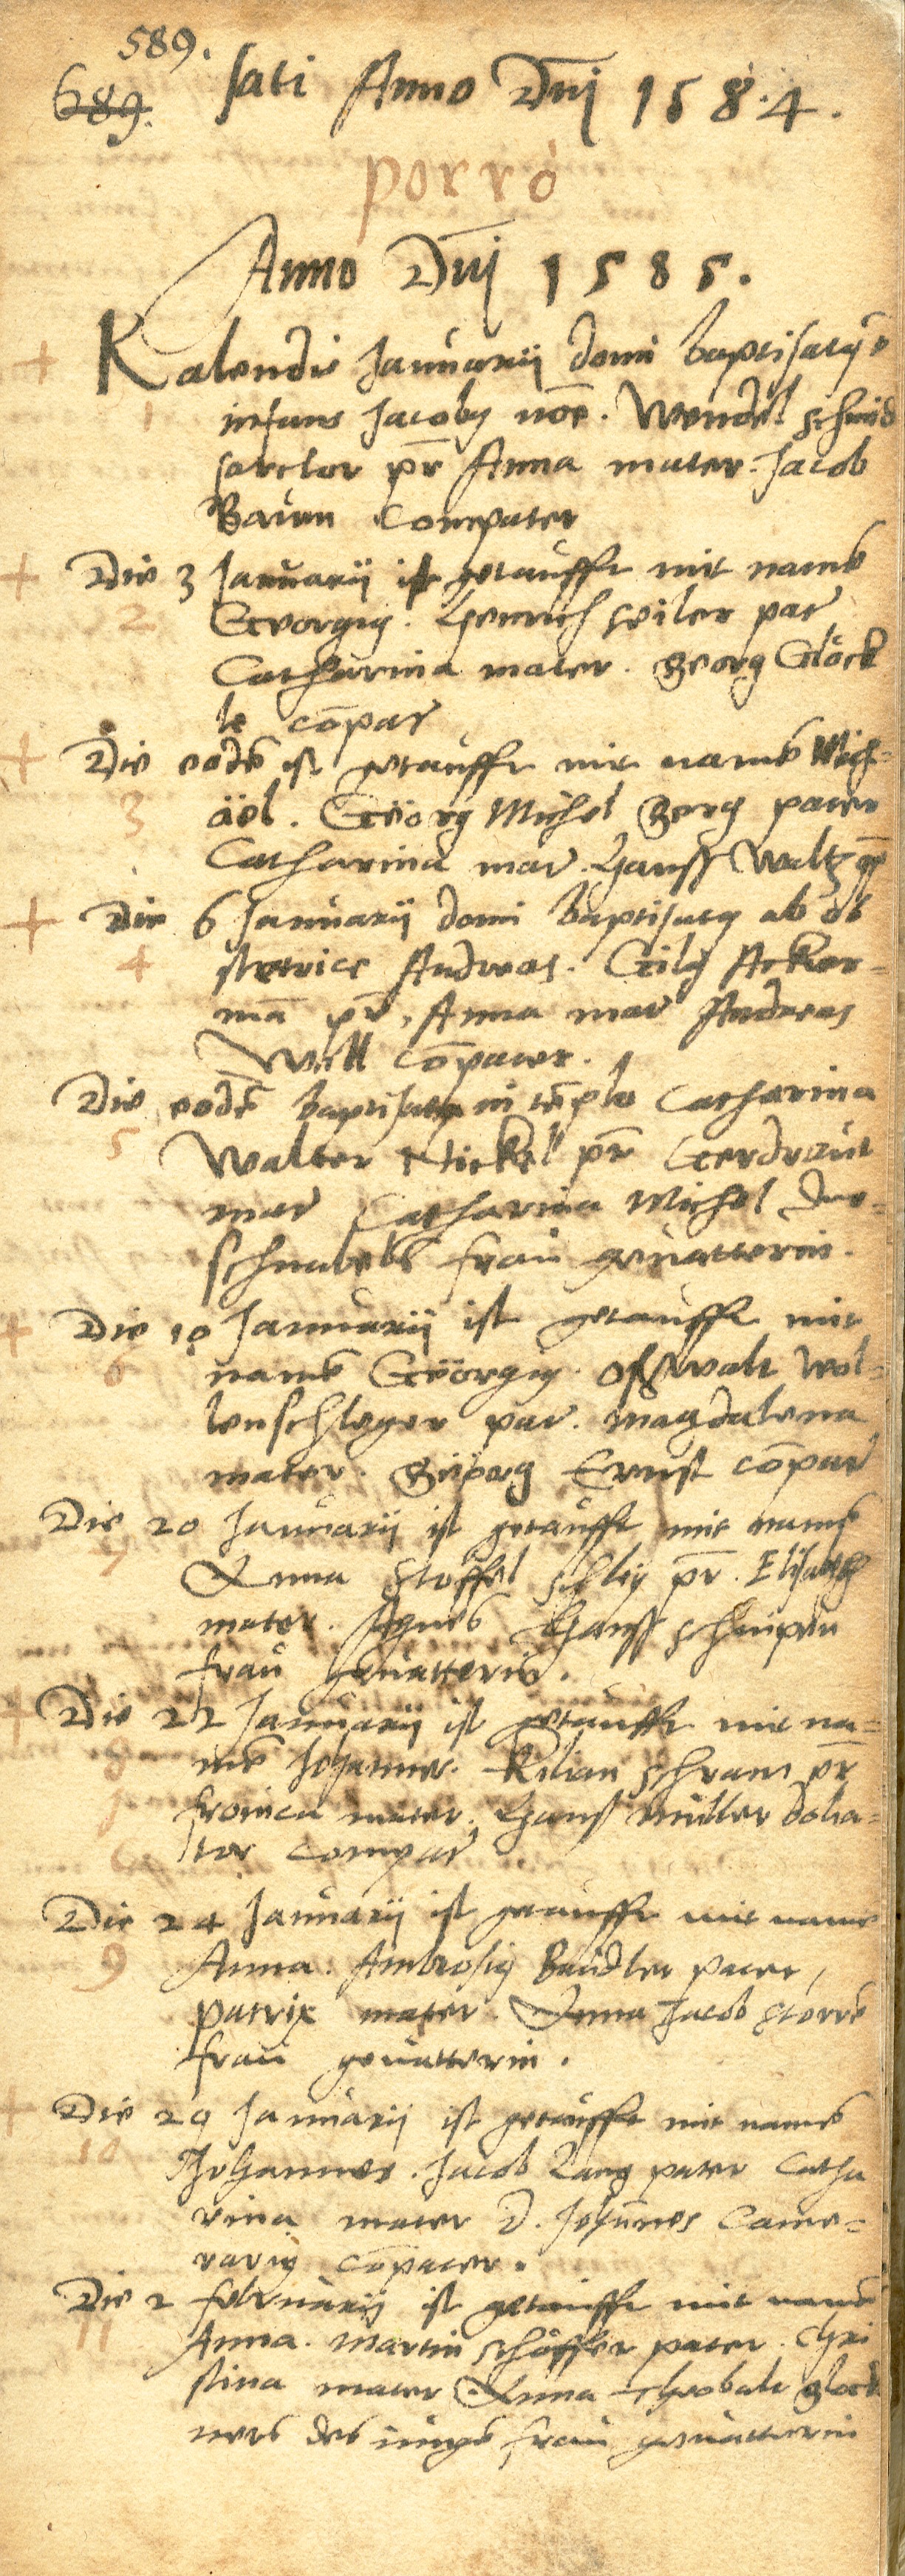 589.
689. sati Anno Dnj 158.4.
porrò
Anno Dnj 1585.
+ Kalendis Januarij domi baptisatus
1 infans Jacobus noē. Wendel schmid
sartor pr Anna mater. Jacob
Baum Compater
+ Die 3 Januarij ist getaufft mit namē
2 Georgius. Henrich seiler par
Catharina mater. Georg Glöck
le cōpar
+ Die eodē ist getaufft mit namē Mich=
3 äel. Geörg Michel Berg pater
Catharina mar. Hanss Waltz
+ Die 6 Januarij domi baptisatus ab ob
4 stetrice Andreas. Gilg Acker=
mā pr, Anna mar Andreas
Will cōpater.
Die eodē baptisata in tēplo Catharina
5 Walter Nickel pr Gerdraut
mar Catharina Michel
schnabels frau geuatterin.
+ Die 10 Januarij ist getaufft mit
6 namē Geörgius. Osswalt Wol=
lenschleger par. Magdalena
mater. Geörg Ernst cōpar
Die 20 Januarij ist getaufft mit namē
7 Anna Stoffel schlig pr. Elisabeth
mater. Agnes Hanss
frau geuatterin.
+ Die 22 Januarij ist getaufft mit na=
8 mē Johannes. Kilian schram pr
fronica mater. Hanss müller dolia=
tor compar
Die 24 Januarij ist getaufft mit name
9 Anna. Ambrosius Beudler pater,
patrix mater. Anna Jacob störrē
frau geuatterin.
+ Die 29 Januarij ist getaufft mit namē
10 Johannes. Jacob Lang pater Catha
rina mater D. Johannes Came=
rarius cōpater.
Die 2 februarij ist getaufft mit namē
11 Anna. Martin schöffer pater. Chri
stina mater Anna theobalt glock
ners des iungē frau geuatterin